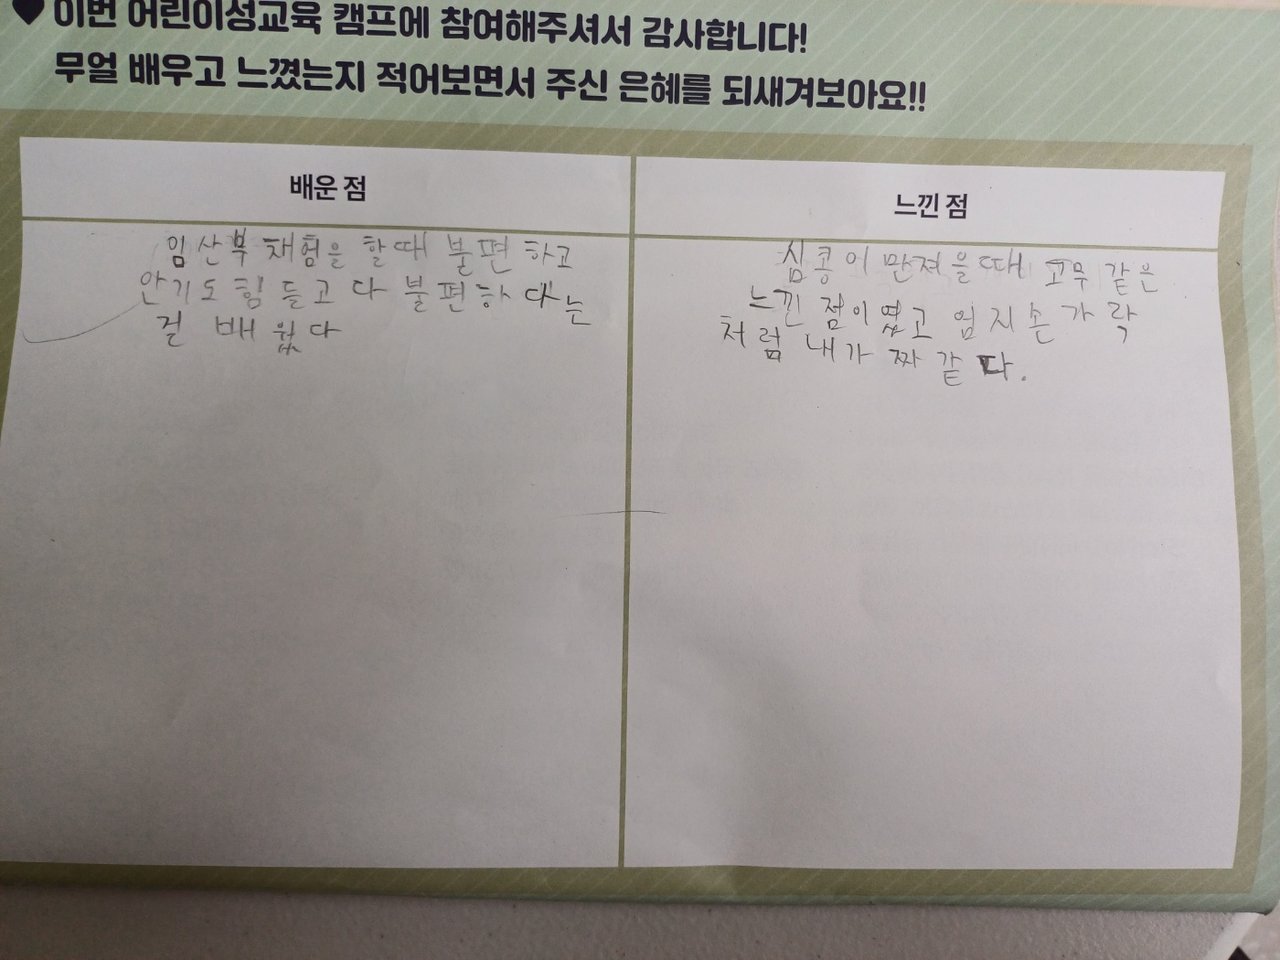 이번 어린이성교육 캠프에 참여해주셔서 감사합니다!
무얼 배우고 느꼈는지 적어보면서 주신 은혜를 되새겨보아요!!
배운 점
임산부 채험을 할때 불편 하고
안기도 힘 들고 다 불편하 다는
걸 배웠다
느낀 점
심콩이 만져을때 고무 같은
느낀 점이였고 엄지손가락
처럼 내가 짜 같다.